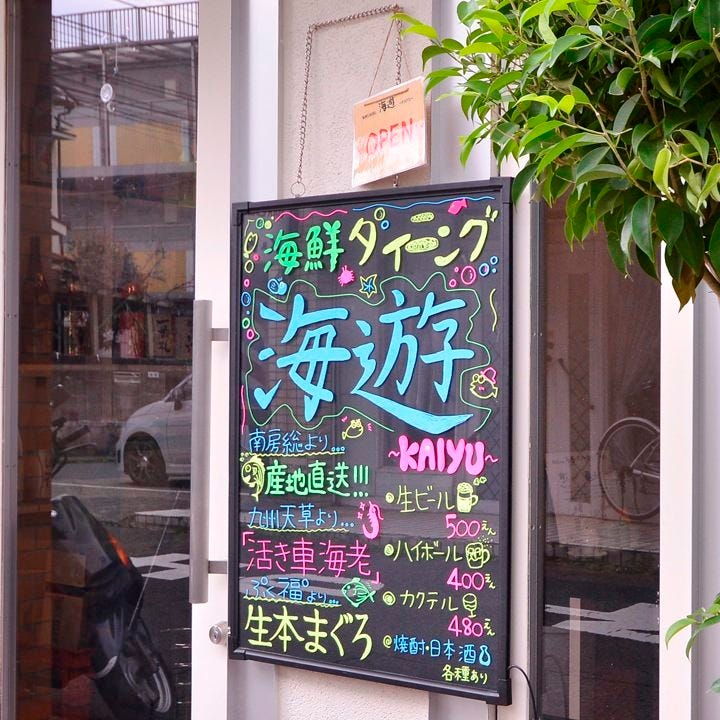 海遊
OPEN
海鮮ダイニング
海遊
~KAIYU~
南房総より...
産地直送!!!
九州天草より...
「活き車海老」
ぷく福より...
生本まぐろ
生ビール
500えん
ハイボール
400えん
カクテル
480えん
焼酎・日本酒
各種あり